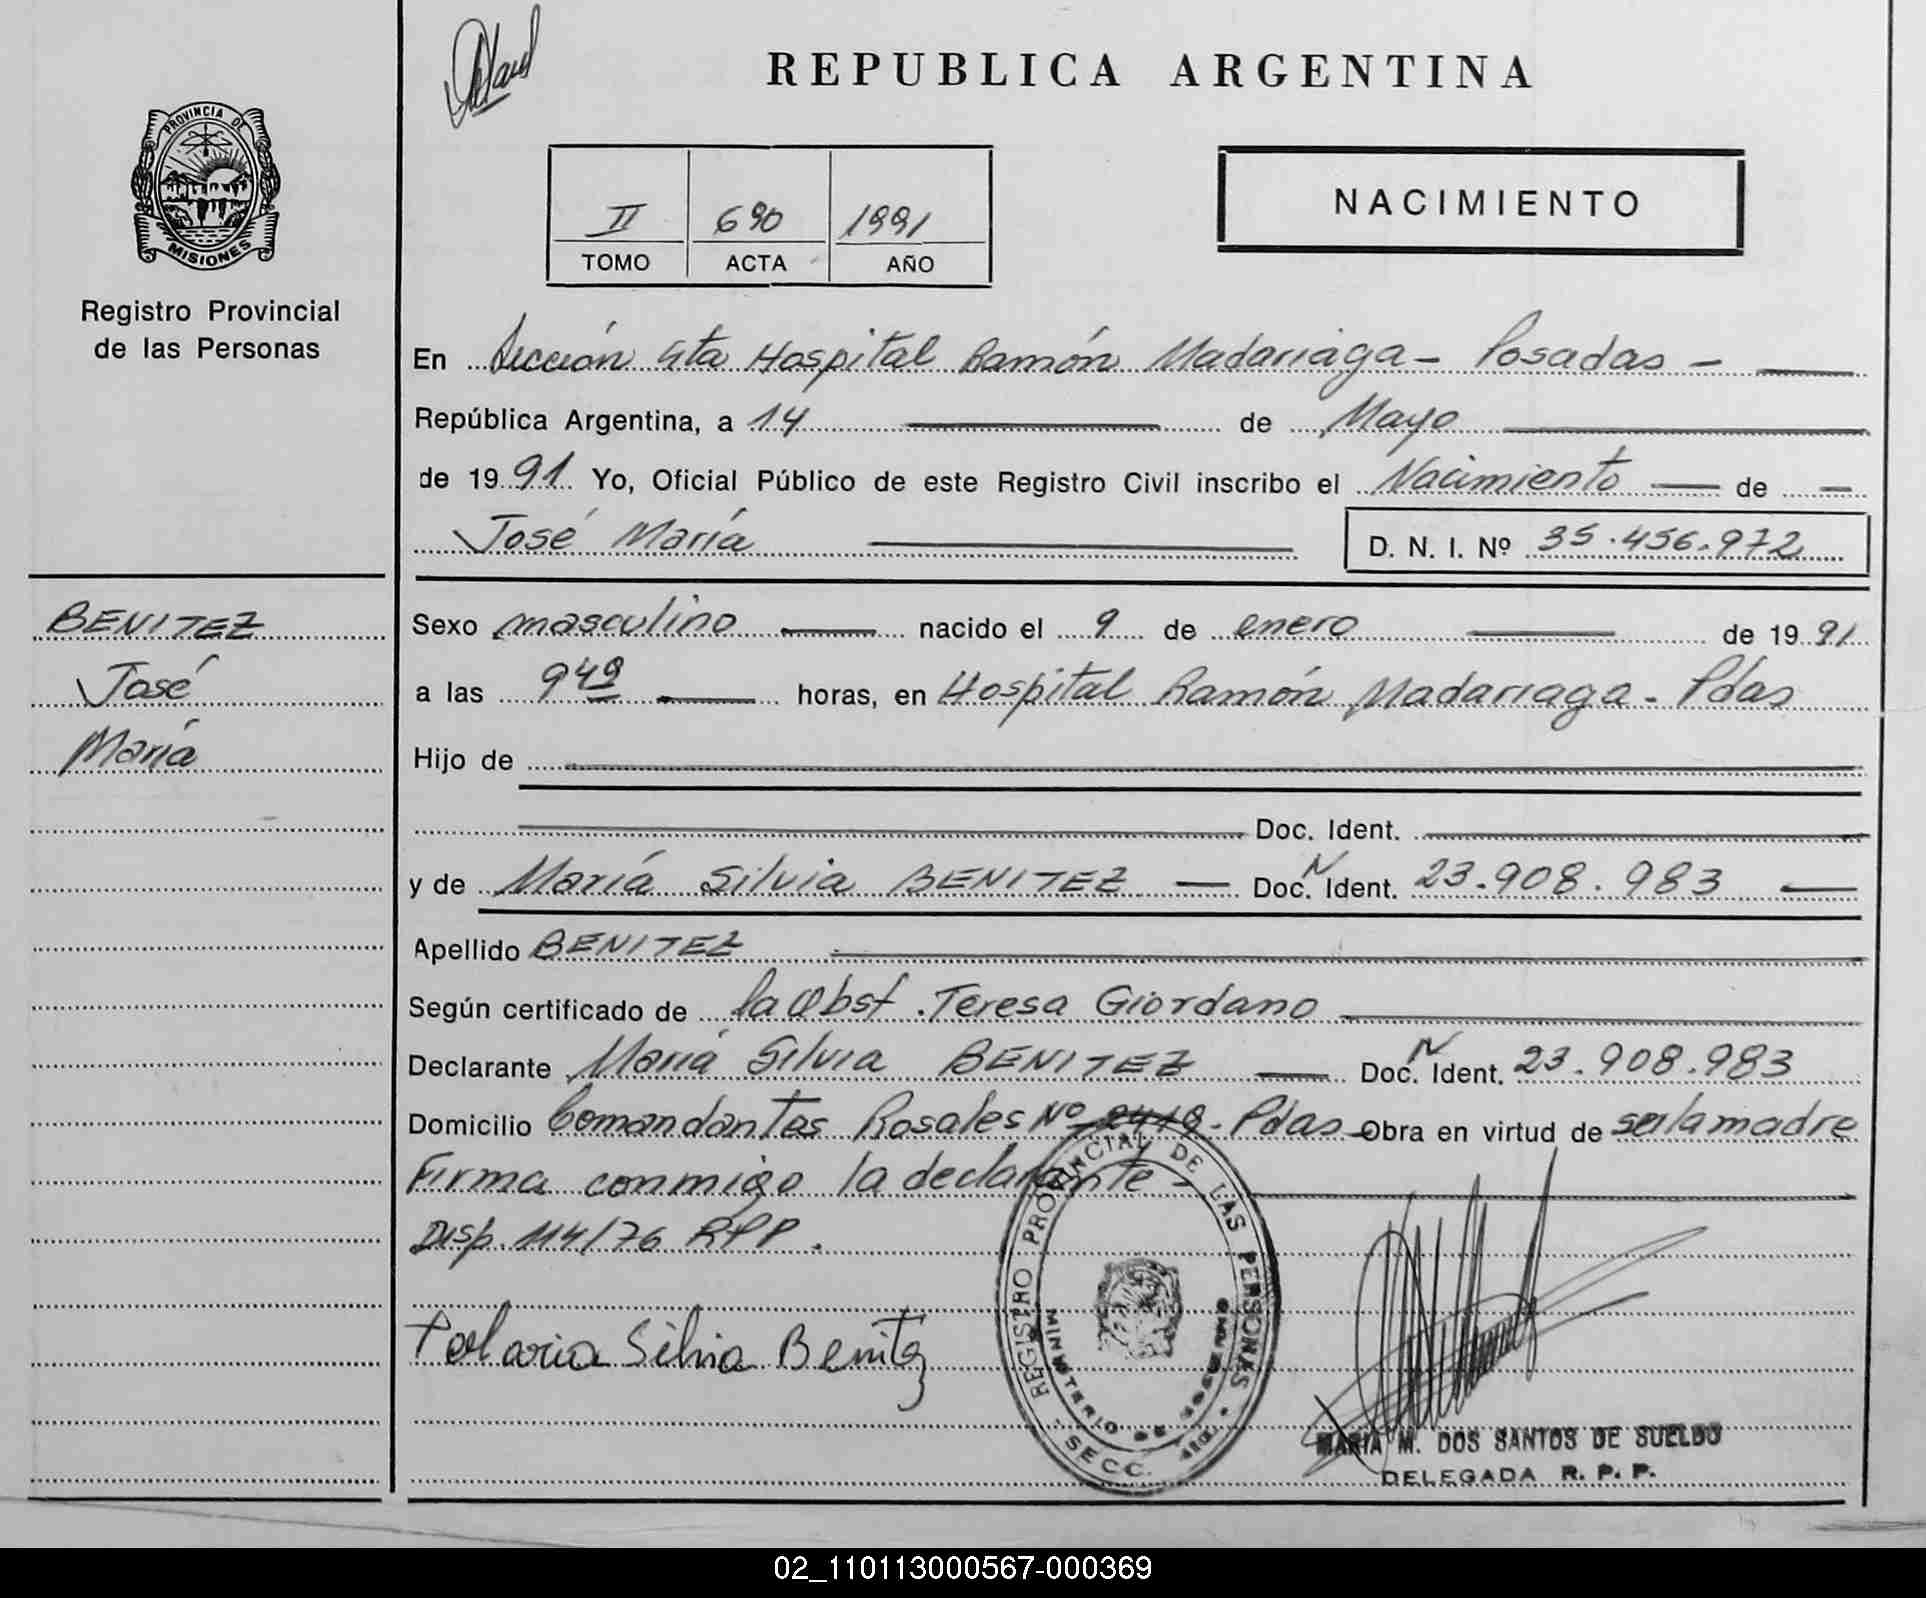 REPUBLICA ARGENTINA
PROVINCIA DE
MISIONES
Registro Provincial
de las Personas
II 690 1991
TOMO ACTA AÑO
NACIMIENTO
En Sección 4ta Hospital Ramón Madariaga - Posadas -
República Argentina, a 14 de Mayo
de 1991 Yo, Oficial Público de este Registro Civil inscribo el Nacimiento de
José María D. N. I. Nº 35.456.972
BENITEZ
José
María
Sexo masculino nacido el 9 de enero de 1991
a las 9 49 horas, en Hospital Ramón Madariaga - Pdas
Hijo de
Doc. Ident.
y de María Silvia BENITEZ Doc. N Ident. 23.908.983
Apellido BENITEZ
Según certificado de la Obst. Teresa Giordano
Declarante María Silvia BENITEZ Doc. N Ident. 23.908.983
Domicilio Comandantes Rosales Nº 2418 - Pdas - Obra en virtud de ser la madre
Firma conmigo la declarante -
Disp. 114/76 RPP.
Silvia Benitez
REGISTRO PROVINCIAL DE LAS PERSONAS
MINISTERIO DE GOBIERNO
SECC. 4
MARIA M. DOS SANTOS DE SUELDO
DELEGADA R. P. P.
02_110113000567-000369